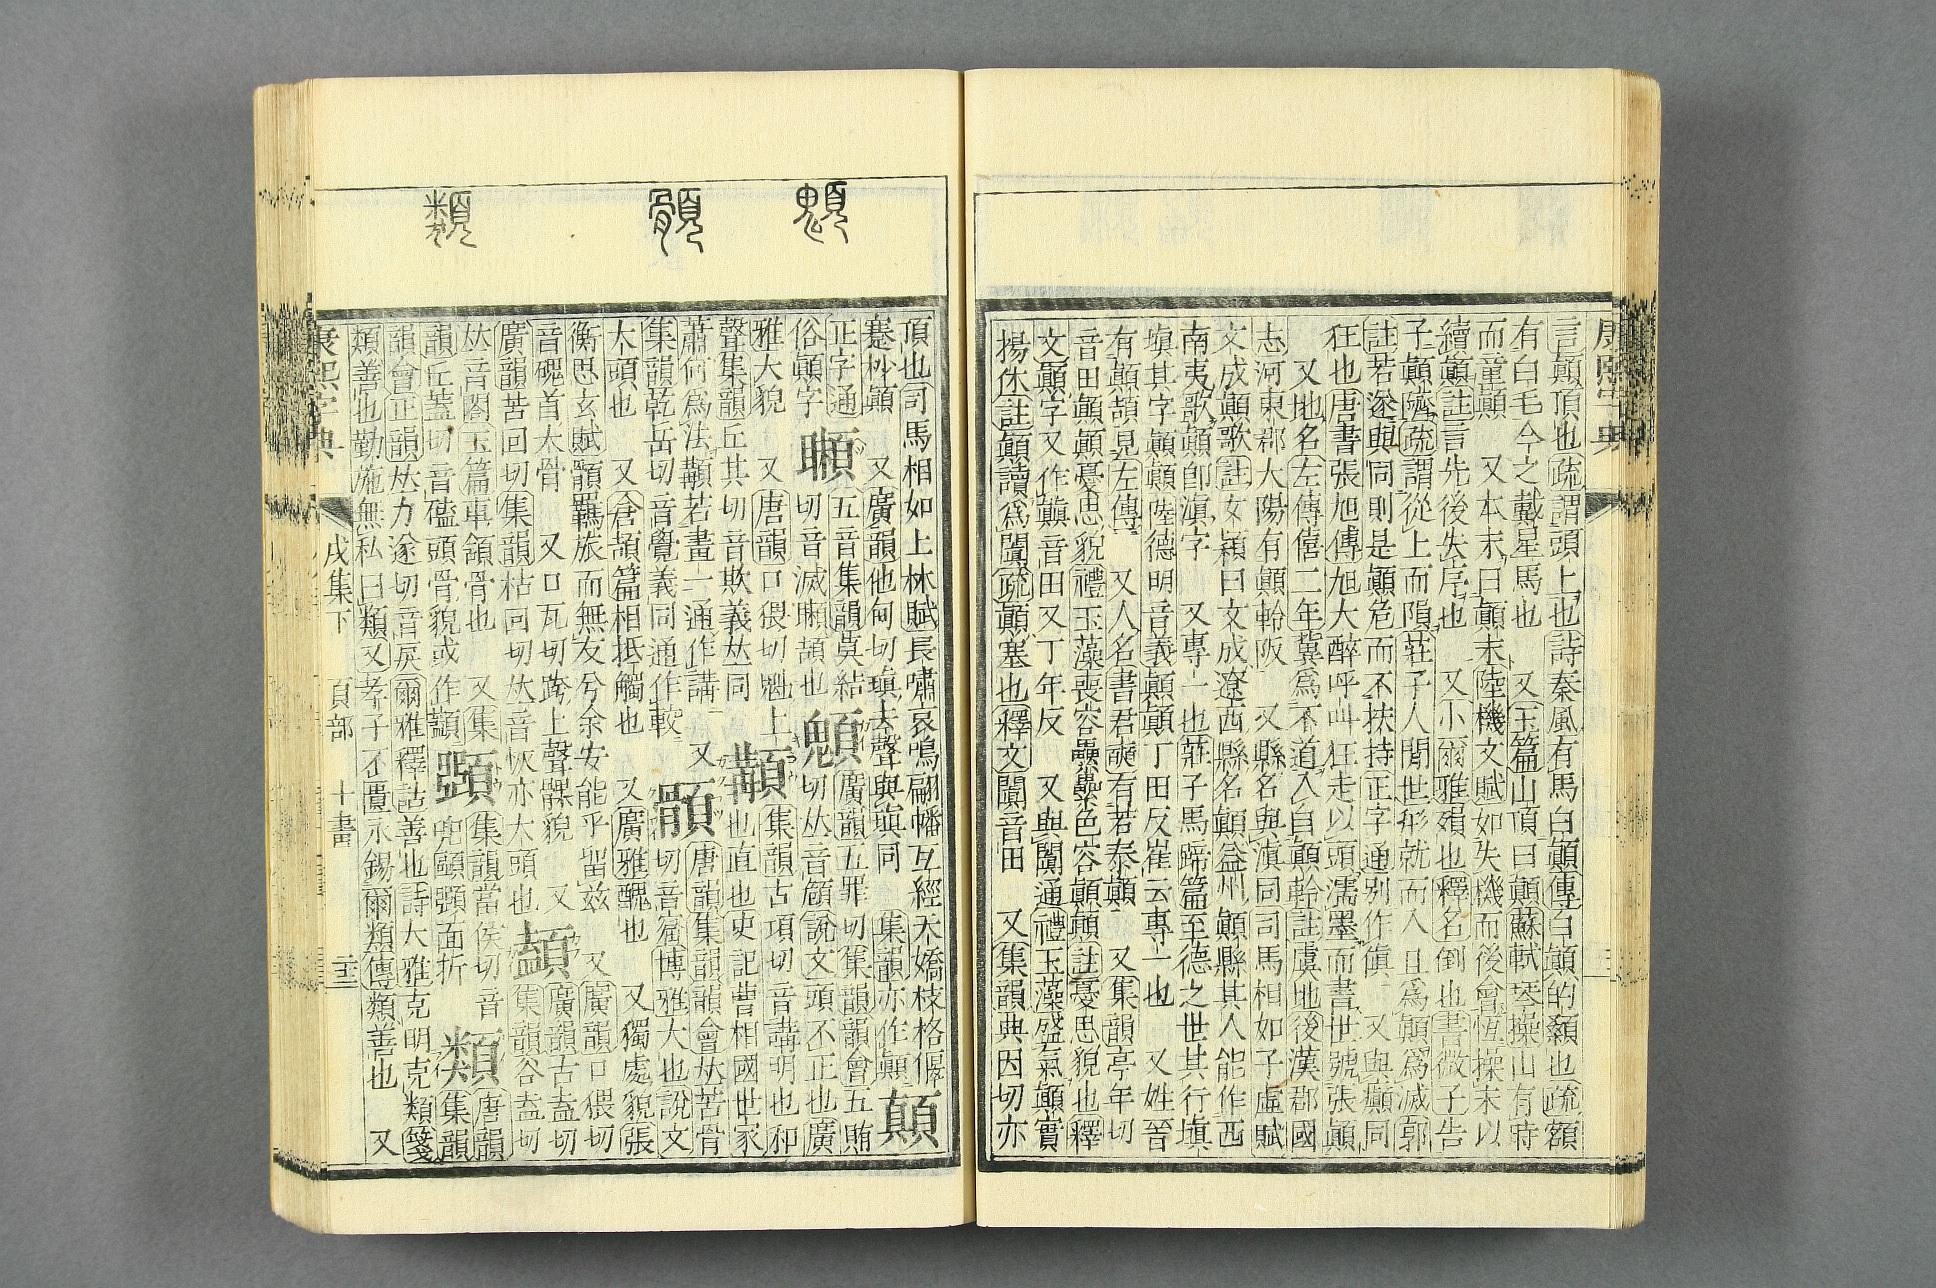 康熙字典
言顚頂也疏謂頭上也詩秦風有馬白顚傳白顚的顙也疏額
有白毛今之戴星馬也 又玉篇山頂曰顚蘇軾琴操山有時
而童顚 又本末曰顚末陸機文賦如失機而後會恆操末以
續顚註言先後失序也 又小爾雅殞也釋名倒也書微子告
子顚隮疏謂從上而隕莊子人閒世形就而入且爲顚爲滅郭
註若遂與同則是顚危而不扶持正字通別作傎 又與癲同
狂也唐書張旭傳旭大醉呼叫狂走以頭濡墨而書世號張顚
又地名左傳僖二年冀爲不道入自顚軨註虞地後漢郡國
志河東郡大陽有顚軨阪 又縣名與滇同司馬相如子虛賦
文成顚歌註文穎曰文成遼西縣名顚益州顚縣其人能作西
南夷歌顚卽滇字 又專一也莊子馬蹄篇至德之世其行塡
塡其字顚顚陸德明音義顚顚丁田反崔云專一也 又姓晉
有顚頡見左傳 又人名書君奭有若泰顚 又集韻亭年切
音田顚顚憂思貌禮玉藻喪容纍纍色容顚顚註憂思貌也釋
文顚字又作顛音田又丁年反 又與闐通禮玉藻盛氣顚實
揚休註顚讀爲闐疏顚塞也釋文闐音田 又集韻典因切亦
頂也司馬相如上林賦長嘯哀鳴翩幡互經夭蟜枝格偃
蹇杪顚 又廣韻他甸切瑱去聲與瑱同 集韻亦作顛 顛
正字通
俗顚字 五音集韻莫結
切音滅䫞頡也 廣韻五罪切集韻韻會五賄
切𠀤音頠說文頭不正也廣
雅大貌 又唐韻口猥切魁上
聲集韻丘其切音欺義𠀤同 集韻古項切音講明也和
也直也史記曹相國世家
蕭何爲法顜若畫一通作講 又
集韻乾岳切音覺義同通作較 顝 唐韻集韻韻會𠀤苦骨
切音窟博雅大也說文
大頭也 又倉頡篇相抵觸也 又廣雅醜也 又獨處貌張
衡思玄賦顝羈旅而無友兮余安能乎留兹 又廣韻口猥切
音磈首大骨 又口瓦切跨上聲髁貌 又
廣韻苦回切集韻枯回切𠀤音恢亦大頭也 廣韻古盍切
集韻谷盍切
𠀤音閤玉篇車頷骨也 又集
韻丘蓋切音磕頭骨貌或作顜 集韻當侯切音
兜顄顊面折 類 唐韻
集韻
韻會正韻𠀤力遂切音戾爾雅釋詁善也詩大雅克明克類箋
類善也勤施無私曰類又孝子不匱永錫爾類傳類善也 又
康熙字典 戌集下 頁部 十畫